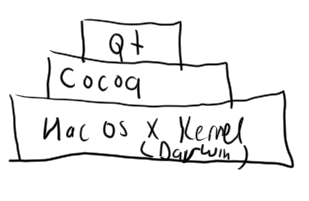 Qt
Cocoa
Mac OS X Kernel
(Darwin)